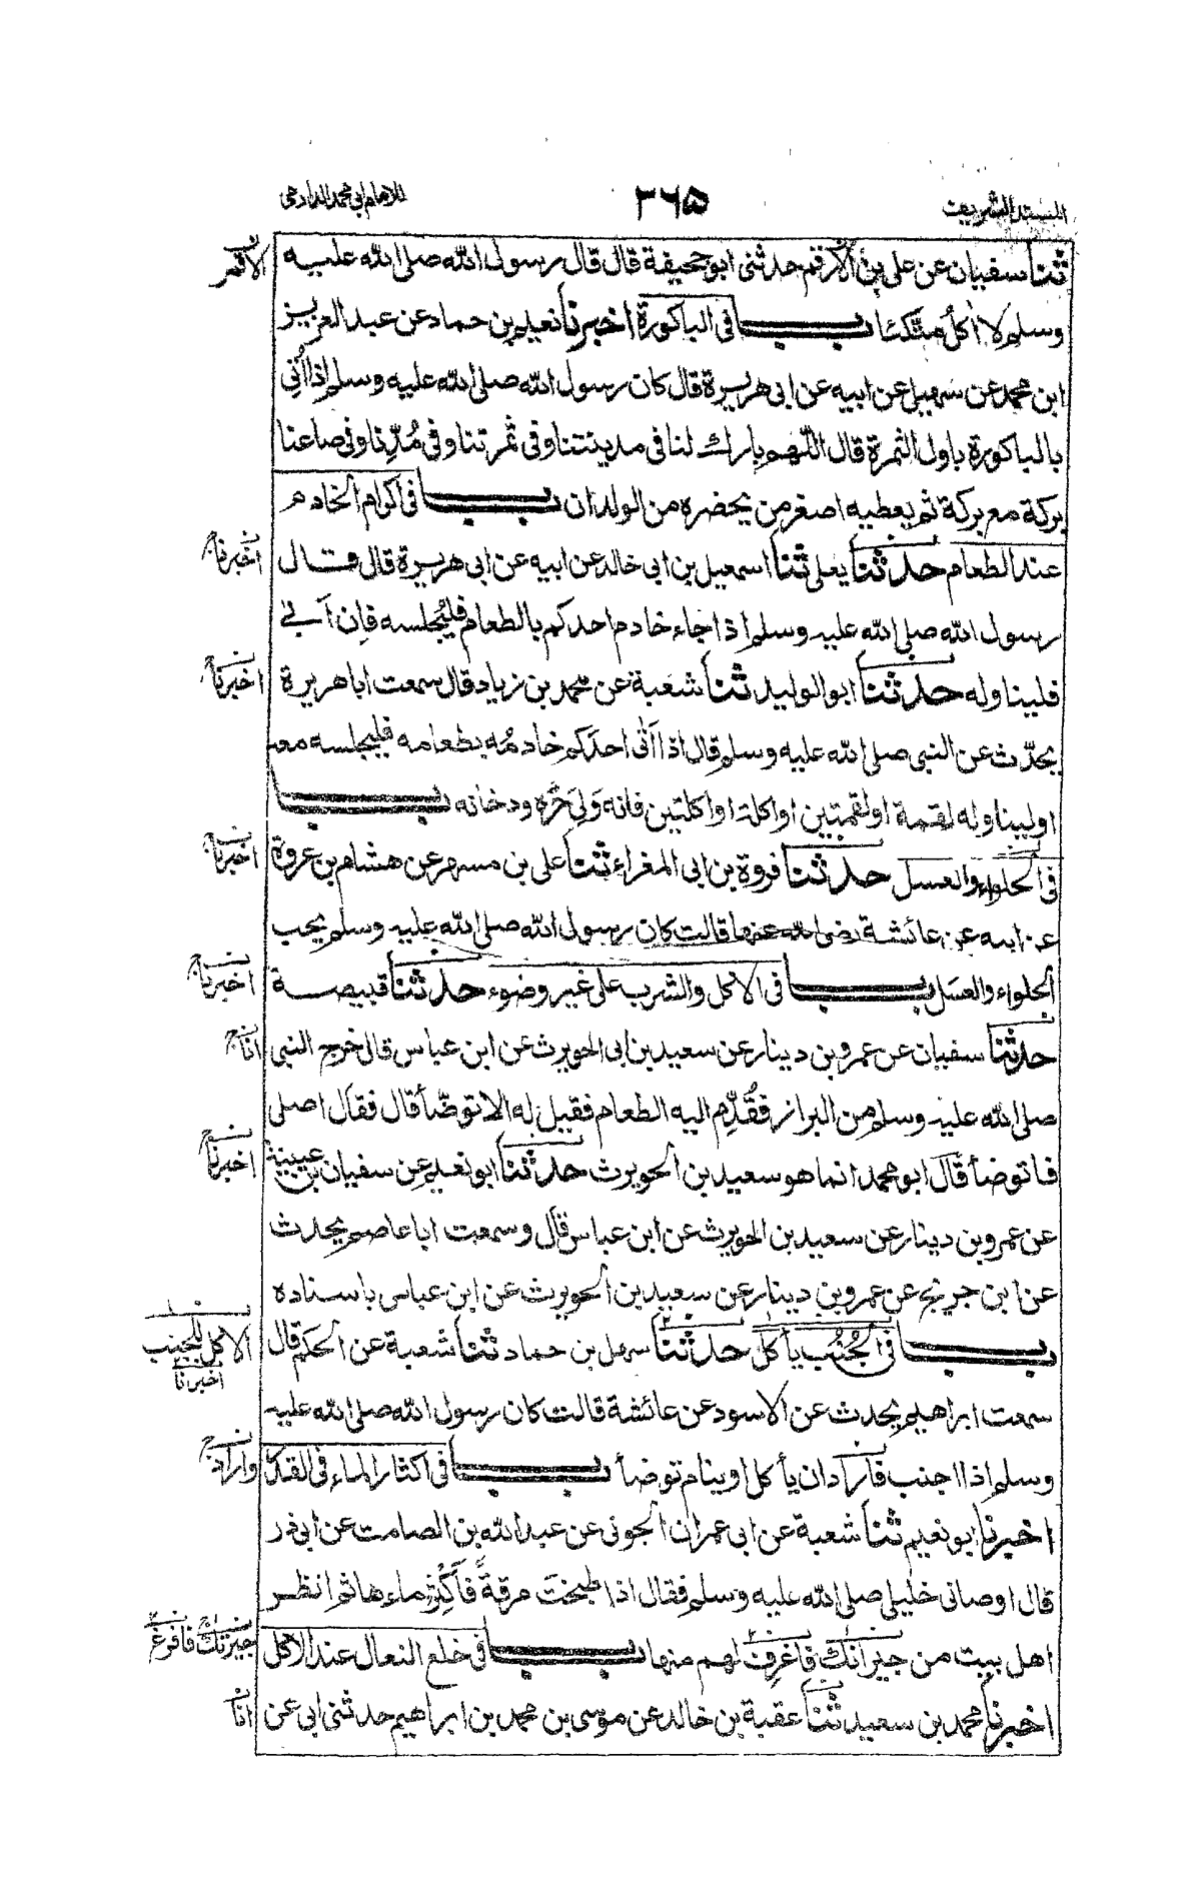 المسند الشريف ٣٦٥ للامام ابي محمد الدارمي
ثنا سفيان عن علي بن الأرقم حدثني ابو جحيفة قال قال رسول الله صلى الله عليه
الاقمر
وسلم لا اكل متكئا باب في الباكورة اخبرنا نعيم بن حماد عن عبد العزيز
ابن محمد عن سهيل عن ابيه عن ابي هريرة قال كان رسول الله صلى الله عليه وسلم اذا اُتي
بالباكورة باول الثمرة قال اللهم بارك لنا في مدينتنا وفي ثمرتنا وفي مُدِّنا وفي صاعنا
بركة مع بركة ثم يعطيه اصغر من يحضره من الولدان باب في اكرام الخادم
عند الطعام حدثنا يعلى ثنا اسمعيل بن ابي خالد عن ابيه عن ابي هريرة قال قال
اخبرنا
رسول الله صلى الله عليه وسلم اذا جاء خادم احدكم بالطعام فليُجلسه فان أبى
فليناوله حدثنا ابو الوليد ثنا شعبة عن محمد بن زياد قال سمعت ابا هريرة
اخبرنا
يحدّث عن النبي صلى الله عليه وسلم قال اذا أتى احدَكم خادمُه بطعامه فليجلسه معه
او ليناوله لقمة او لقمتين او اكلة او اكلتين فانه وَلِيَ حَرَّه ودخانه باب
في الحلواء والعسل حدثنا فروة بن ابي المغراء ثنا علي بن مسهر عن هشام بن عروة
اخبرنا
عن ابيه عن عائشة رضي الله عنها قالت كان رسول الله صلى الله عليه وسلم يحب
الحلواء والعسل باب في الاكل والشرب على غير وضوء حدثنا قبيصة
اخبرنا
حدثنا سفيان عن عمرو بن دينار عن سعيد بن ابي الحويرث عن ابن عباس قال خرج النبي
انا
صلى الله عليه وسلم من البراز فقُدِّم اليه الطعام فقيل له الا توضّأ قال فقال اصلي
فاتوضأ قال ابو محمد انما هو سعيد بن الحويرث حدثنا ابو نعيم عن سفيان بن عيينة
اخبرنا
عن عمرو بن دينار عن سعيد بن الحويرث عن ابن عباس قال وسمعت ابا عاصم يحدث
عن ابن جريج عن عمرو بن دينار عن سعيد بن الحويرث عن ابن عباس باسناده
باب في الجُنُب يأكل حدثنا سهل بن حماد ثنا شعبة عن الحكم قال
الاكل للجنب
اخبرنا
سمعت ابراهيم يحدث عن الاسود عن عائشة قالت كان رسول الله صلى الله عليه
وسلم اذا اجنب فاراد ان يأكل او ينام توضأ باب في اكثار الماء في القدر
واراد
اخبرنا ابو نعيم ثنا شعبة عن ابي عمران الجوني عن عبد الله بن الصامت عن ابي ذر
قال اوصاني خليلي صلى الله عليه وسلم فقال اذا طبخت مرقةً فأَكْثِر ماءها ثم انظر
اهل بيت من جيرانك فاغرف لهم منها باب في خلع النعال عند الاكل
جيرتك فافرغ
اخبرنا محمد بن سعيد ثنا عقبة بن خالد عن موسى بن محمد بن ابراهيم حدثني ابي عن
انا